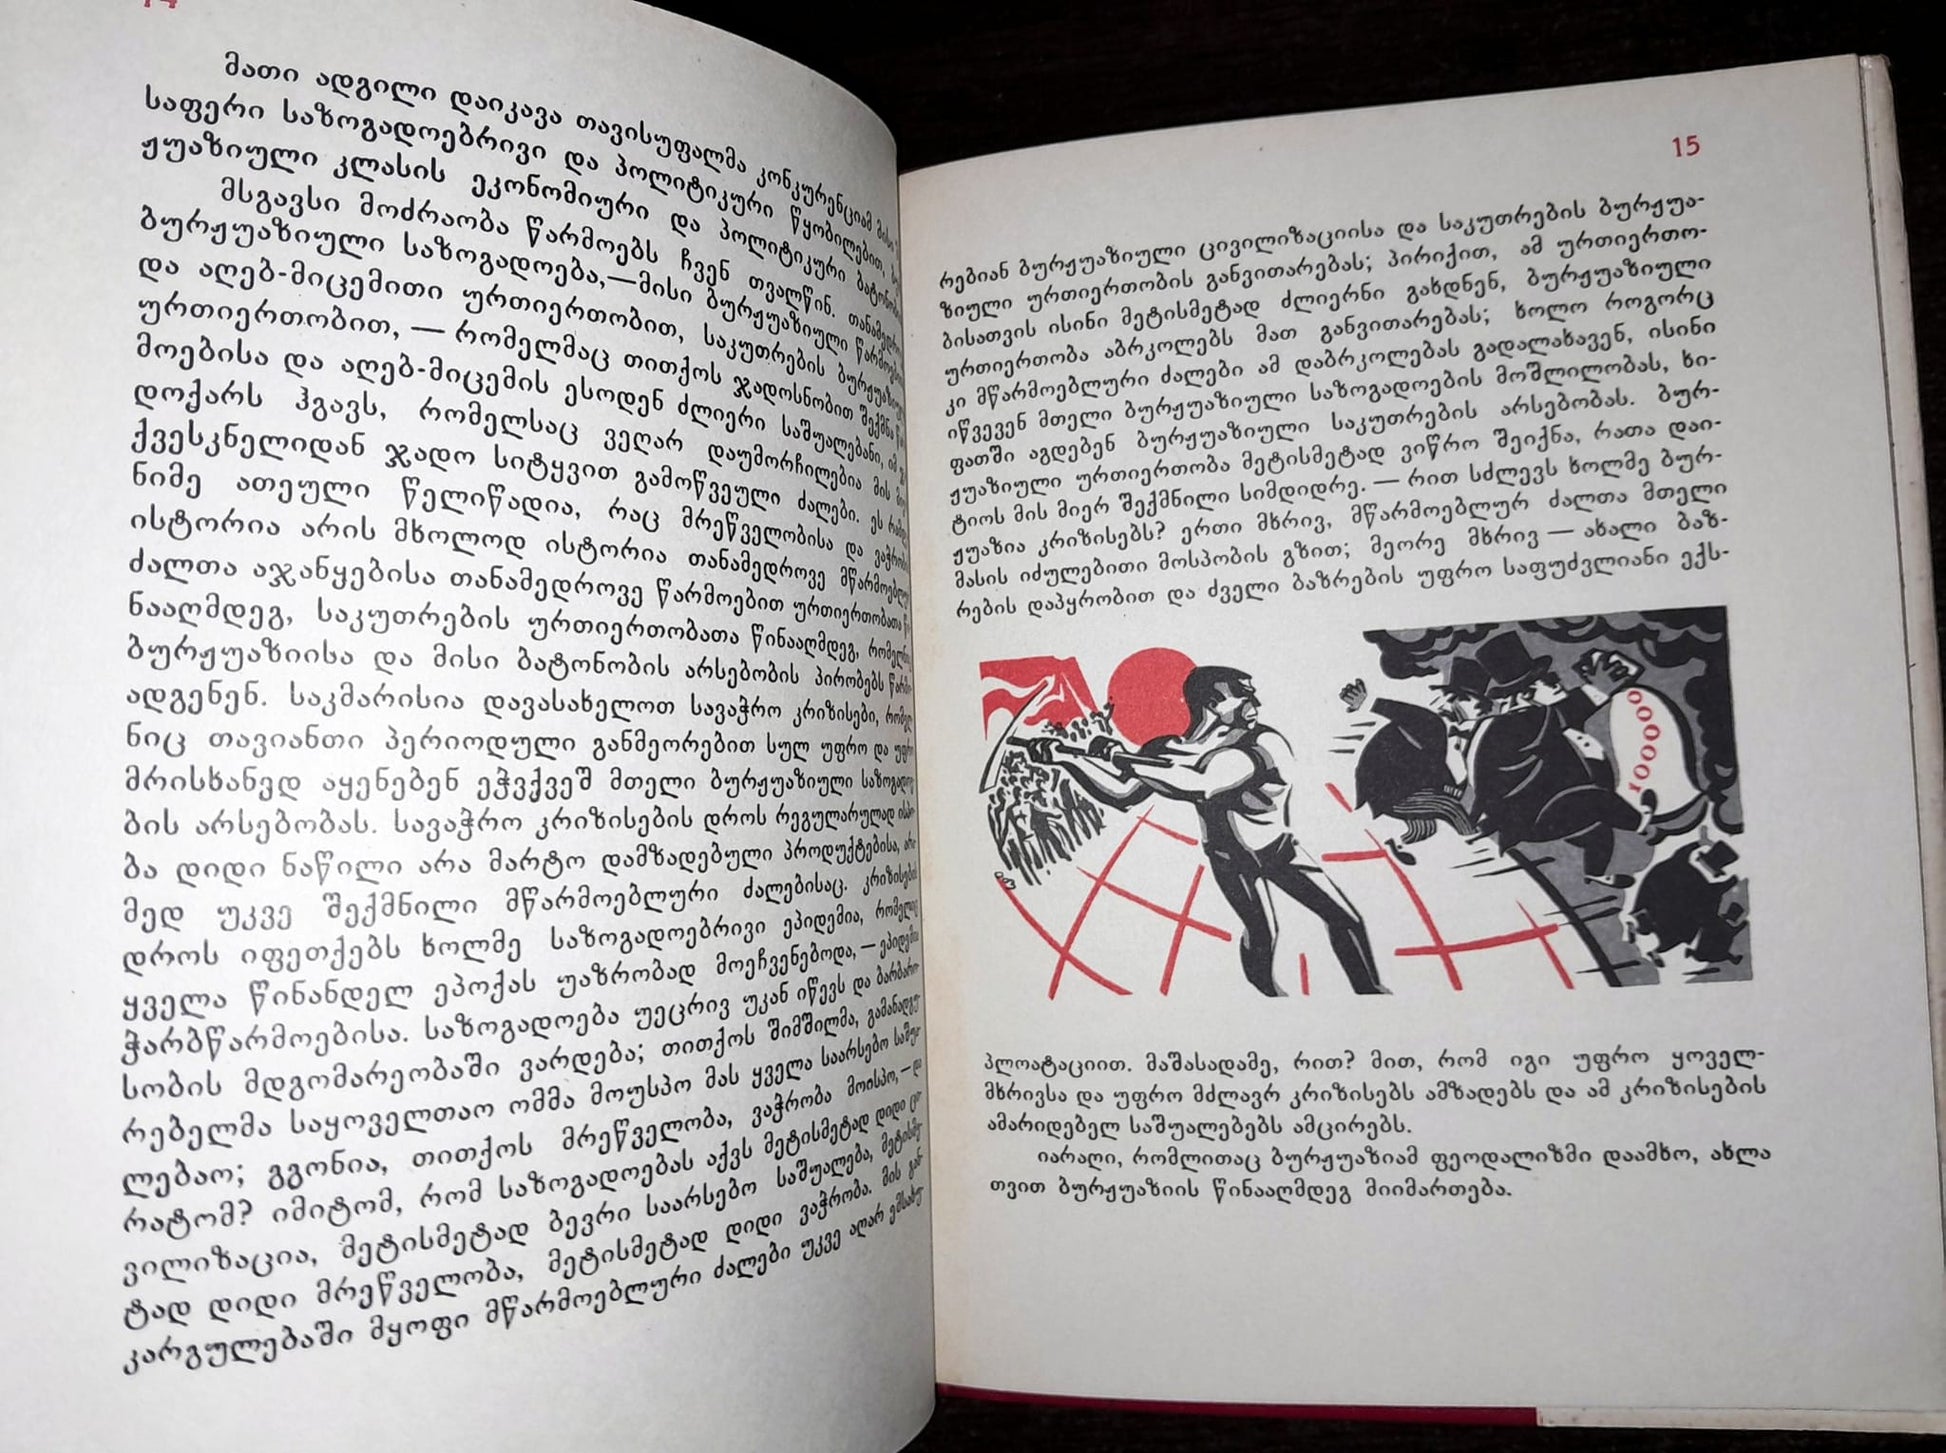 მათი ადგილი დაიკავა თავისუფალმა კონკურენციამ მისი
საფერი საზოგადოებრივი და პოლიტიკური წყობილებით,
ჟუაზიული კლასის ეკონომიური და პოლიტიკური
მსგავსი მოძრაობა წარმოებს ჩვენ თვალწინ.
ბურჟუაზიული საზოგადოება,—მისი ბურჟუაზიული
და აღებ-მიცემითი ურთიერთობით, საკუთრების
ურთიერთობით, — რომელმაც თითქოს ჯადოსნობით შექმნა
მოებისა და აღებ-მიცემის ესოდენ ძლიერი საშუალებანი, იმ
დოქარს ჰგავს, რომელსაც ვეღარ დაუმორჩილებია მის
ქვესკნელიდან ჯადო სიტყვით გამოწვეული ძალები. ეს
ნიმე ათეული წელიწადია, რაც მრეწველობისა და
ისტორია არის მხოლოდ ისტორია თანამედროვე
ძალთა აჯანყებისა თანამედროვე წარმოებით ურთიერთობათა
ნააღმდეგ, საკუთრების ურთიერთობათა წინააღმდეგ,
ბურჟუაზიისა და მისი ბატონობის არსებობის პირობებს
ადგენენ. საკმარისია დავასახელოთ სავაჭრო კრიზისები,
ნიც თავიანთი პერიოდული განმეორებით სულ უფრო და უფრო
მრისხანედ აყენებენ ეჭვქვეშ მთელი ბურჟუაზიული
ბის არსებობას. სავაჭრო კრიზისების დროს რეგულარულად
ბა დიდი ნაწილი არა მარტო დამზადებული პროდუქტებისა,
მედ უკვე შექმნილი მწარმოებლური ძალებისაც. კრიზისების
დროს იფეთქებს ხოლმე საზოგადოებრივი ეპიდემია,
ყველა წინანდელ ეპოქას უაზრობად მოეჩვენებოდა, — ეპიდემია
ჭარბწარმოებისა. საზოგადოება უეცრივ უკან იწევს და
სობის მდგომარეობაში ვარდება; თითქოს შიმშილმა,
რებელმა საყოველთაო ომმა მოუსპო მას ყველა საარსებო
ლებაო; გგონია, თითქოს მრეწველობა, ვაჭრობა მოისპო, — და
რატომ? იმიტომ, რომ საზოგადოებას აქვს მეტისმეტად დიდი
ვილიზაცია, მეტისმეტად ბევრი საარსებო საშუალება,
ტად დიდი მრეწველობა, მეტისმეტად დიდი ვაჭრობა. მის
კარგულებაში მყოფი მწარმოებლური ძალები უკვე აღარ
15
რებიან ბურჟუაზიული ცივილიზაციისა და საკუთრების ბურჟუა-
ზიული ურთიერთობის განვითარებას; პირიქით, ამ ურთიერთო-
ბისათვის ისინი მეტისმეტად ძლიერნი გახდნენ, ბურჟუაზიული
ურთიერთობა აბრკოლებს მათ განვითარებას; ხოლო როგორც
კი მწარმოებლური ძალები ამ დაბრკოლებას გადალახავენ, ისინი
იწვევენ მთელი ბურჟუაზიული საზოგადოების მოშლილობას, ხი-
ფათში აგდებენ ბურჟუაზიული საკუთრების არსებობას. ბურ-
ჟუაზიული ურთიერთობა მეტისმეტად ვიწრო შეიქნა, რათა დაი-
ტიოს მის მიერ შექმნილი სიმდიდრე. — რით სძლევს ხოლმე ბურ-
ჟუაზია კრიზისებს? ერთი მხრივ, მწარმოებლურ ძალთა მთელი
მასის იძულებითი მოსპობის გზით; მეორე მხრივ — ახალი ბაზ-
რების დაპყრობით და ძველი ბაზრების უფრო საფუძვლიანი ექს-
100000
პლოატაციით. მაშასადამე, რით? მით, რომ იგი უფრო ყოველ-
მხრივსა და უფრო მძლავრ კრიზისებს ამზადებს და ამ კრიზისების
ამარიდებელ საშუალებებს ამცირებს.
იარაღი, რომლითაც ბურჟუაზიამ ფეოდალიზმი დაამხო, ახლა
თვით ბურჟუაზიის წინააღმდეგ მიიმართება.